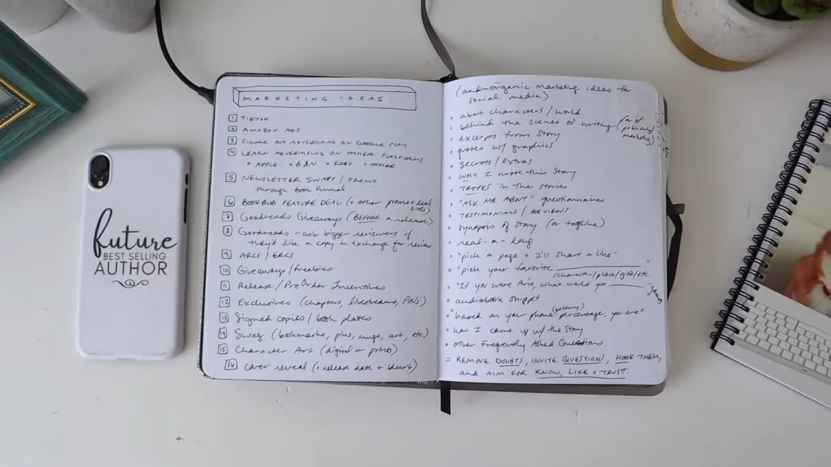 future
BEST SELLING
AUTHOR
MARKETING IDEAS:
1 TIKTOK
2 AMAZON ADS
3 FIGURE OUT ADVERTISING ON GOOGLE PLAY
4 LEARN ADVERTISING ON OTHER PLATFORMS
• APPLE • B&N • KOBO • OTHER
5 NEWSLETTER SWAPS / PROMO
through book funnel
6 BOOKBUB FEATURE DEAL (+ other promo + deal
sites)
7 Goodreads Giveaways (BEFORE a release)
8 Goodreads - ask bigger reviewers if
they'd like a copy in exchange for review
9 ARCS / ERCS
10 Giveaways/freebies
11 Release/PreOrder Incentives
12 Exclusives (chapters, livestreams,
13 Signed copies / book plates
14 Swag (bookmarks, pins, mugs, art, etc)
15 Character Art (digital or prints)
16 Cover reveal (+ release date + blurb)
(and organic marketing ideas for
social media)
• about characters / world
• behind the scenes of writing (or of
publishing/
marketing)
• excerpts from story
• quotes w/ graphics
• secrets / extras
• WHY I wrote this story
• TROPES in the stories
• "ASK ME ABOUT" questionnaires
• TESTIMONIALS / REVIEWS
• synopsis of story (or together)
• read-a-long
• "pick a page + I'll share a line"
• "pick your favorite ____
(character/place/ /etc.
• "If you were Aria, what would you ____"
• audiobook snippet
• "based on your phone (battery) percentage, you are"
• how I came up w/ the story
• other Frequently Asked Questions
= REMOVE DOUBTS, INVITE QUESTION, HOOK THEM,
and AIM FOR KNOW, LIKE + TRUST.